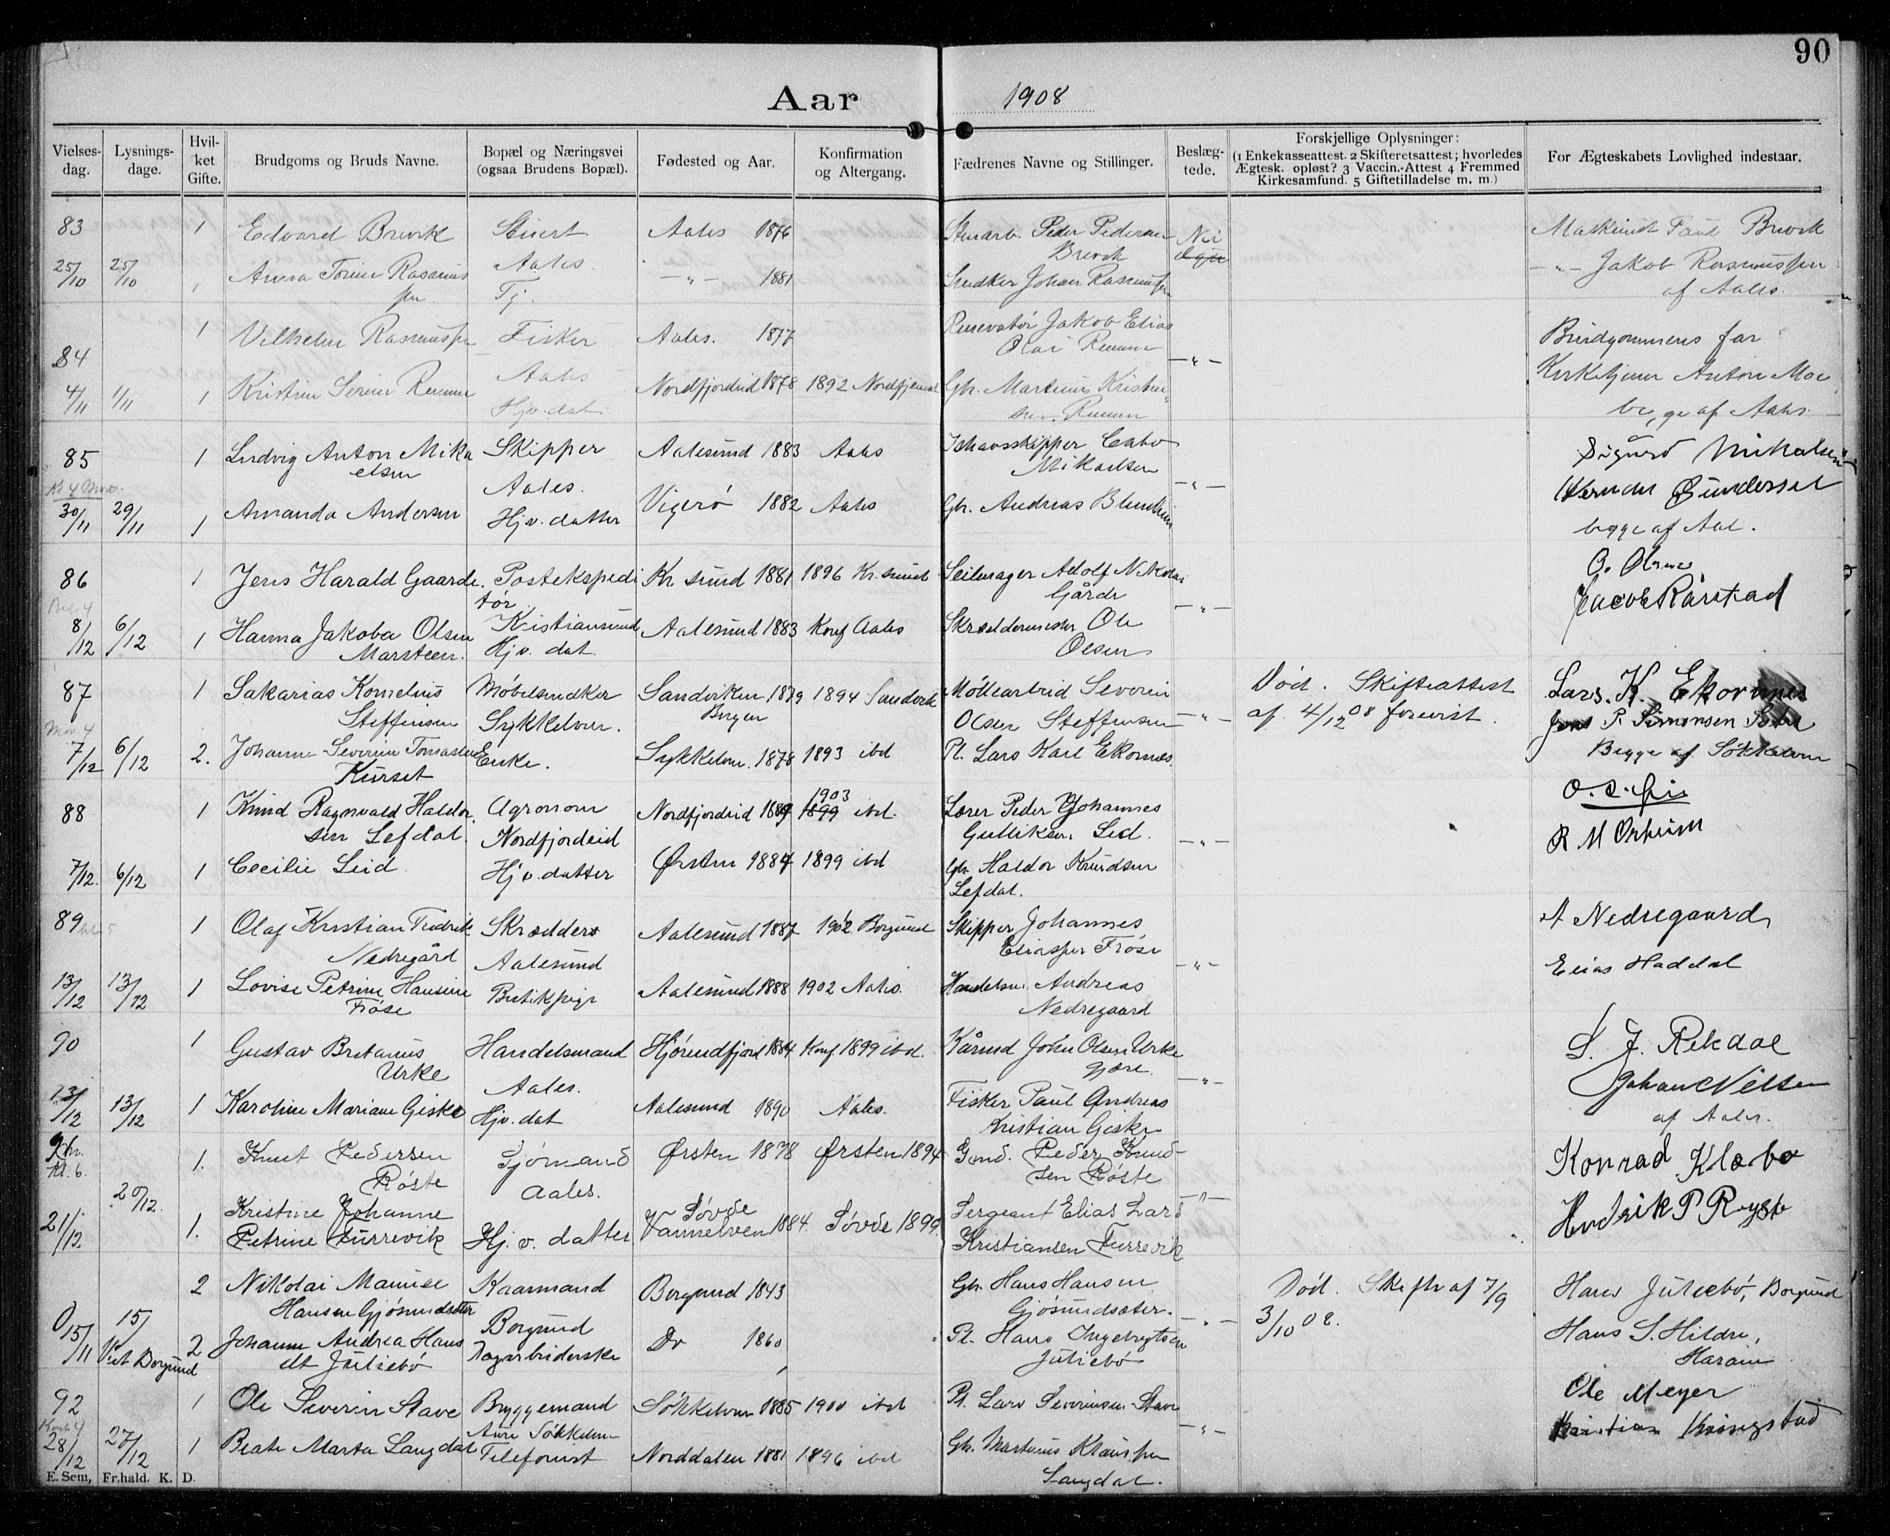 90
Aar 1908
Vielses-dag. Lysnings-dage. Hvil-ket Gifte. Brudgoms og Bruds Navne. Bopæl og Næringsvei (ogsaa Brudens Bopæl). Fødested og Aar. Konfirmation og Altergang. Fædrenes Navne og Stillinger. Beslæg-tede. Forskjellige Oplysninger: (1 Enkekasseattest. 2 Skifteretsattest; hvorledes Ægtesk. opløst? 3 Vaccin.-Attest 4 Fremmed Kirkesamfund. 5 Giftetilladelse m. m.) For Ægteskabets Lovlighed indestaar.
83 1 Edvard Brevik Aales 1876 Peder Pedersen Nei Brevik
Aales. Brevik
25/10 25/10 Anna -"- 1881 Johan Rasmussen -"- Jakob Rasmussen
Tj. af Aales.
1 Vilhelm Fisker Aales. 1877 Jakob Elias Brudgommens far
84 Olai -"-
Aales Kirketjener Anton Moe
4/11 1/11 1 Kristine Serine Nordfjordeid 1878 1892 Gbr. Martinus
Hj.v.dat. af Aales
85 1 Ludvig Anton Mika Skipper Aalesund 1883 Aales Ishavsskipper
elsen Mikaelsen
Aales. -"- Gundersen
30/11 29/11 1 Amanda Andersen Hjv.datter Vigerø 1882 Aales Gbr. Andreas
begge af Aal.
86 1 Jens Harald Gaarde. Postekspedi Kr sund 1881 1896 Kr.sund Seilmager Adolf Nikolai O. Olsen
tør Gårde Jacob Rårstad
8/12 6/12 1 Hanna Jakoba Olsen Kristiansund Aalesund 1883 Konf Aales Skræddermester Ole -"-
Marsteen. Hjv. dat Olsen
87 1 Sakarias Kornelius Møbelsnedker Sandviken 1879 1894 Sandvik Severin Død. Skifteattest Lars. K. Ekornnes
Steffensen Sykkelven. Bergen Olsen Steffensen -"- af 4/12 08 forevist. P. Simonsen
7/12 6/12 2. Johanne Severine Tomasdat Enke. Sykkelven. 1878 1893 ibd Pl. Lars Karl Ekornæs. Begge af Søkkelven
Kurset
88 1 Knud Ragnvald Haldor Agronom Nordfjordeid 1903 1899 ibd. Lærer Peder Johannes
sen Lefdal. Nordfjordeid Gulliksen Leid. -"- R M Orheim
7/12. 6/12 1 Cecilie Leid. Hjv.datter Ørsten 1884 1899 ibd Gbr. Haldor Knudsen
Lefdal.
89 1 Olaf Kristian Fredrik Skrædder Aalesund 1887 1902 Borgund Skipper Johannes A Nedregaard
Nedregård Aalesund Eliassen Frøse
13/12 13/12 1 Lovise Petrine Hansine Butikpige Aalesund 1888 1902 Aales. Handelsm. Andreas -"- Elias Haddal
Frøse Nedregaard
90 1 Gustav Bretanus Handelsmand Hjørendfjord 1884 Konf 1899 ibd. Kårmd John Olsen Urke S. J. Rekdal
Urke Aales. -"- Johan Nilsen
13/12 13/12 1 Karoline Mariane Giske Hjv.dat Aalesund 1890 Aales. Fisker Paul Andreas af Aales.
Kristian Giske
Kl. 6. 1. Knut Pedersen Sjømand Ørsten 1878 Ørsten 1894 Gmd. Peder Knud- Konrad Klæbo
Røste Aales. sen Røste
20/12. Kristine Johanne Søvde Sergeant Elias Lars -"- P Røyste
21/12 1. Petrine Furrevik Hj. v. datter Vannelven 1884. Søvde 1899. Kristiansen Furrevik
2 Nikolai Kaarmand Borgund 1843 Gbr. Hans Hansen Død. Skifte af 7/9 Hans Juliebø, Borgund
Hansen Gjøsundsæter Gjøsundsæter. -"- 3/10 08.
0 15/11 15/ Vist Borgund 2 Johanne Andrea Hans Borgund Do 1860 Pl. Hans Ingebrigtsen Hans S. Hildre,
dt Juliebø Dagarbeiderske Juliebø Haram
92 1 Ole Severin Stave Byggemand Søkkelven 1885 1900 ibd Pl. Lars Severinsen Stave Ole Meyer
Aure Søkkelven -"- Kristian Kongstad
28/12 27/12 1 Beate Marta Langdal Telefonist Norddalen 1881 1896 ibd Gbr. Martinus
Langdal.
E. Sem, Fr.hald. K. D.